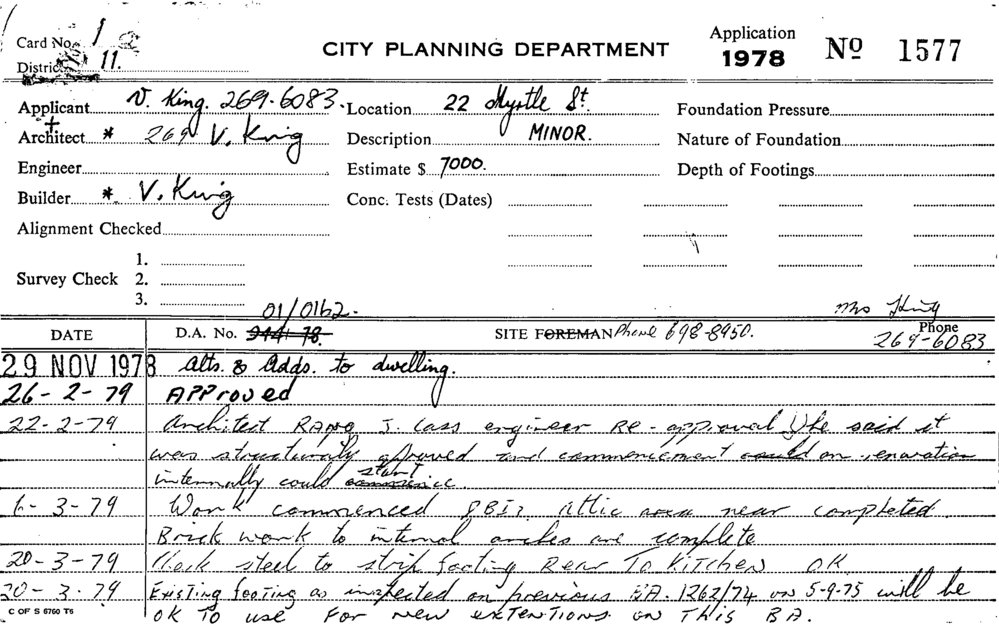 Card No. 1
District 11.
CITY PLANNING DEPARTMENT
Application
1978 Nº 1577
Applicant V. King. 269-6083. Location 22 Myrtle St. Foundation Pressure
+
Architect * 269 V. King Description MINOR. Nature of Foundation
Engineer Estimate $ 7000. Depth of Footings
Builder * V. King Conc. Tests (Dates)
Alignment Checked
1.
Survey Check 2.
3.
01/0162. Mrs King
DATE D.A. No. 944 78. SITE FOREMAN Phone 698-8950. Phone 269-6083
29 NOV 1978 Alts. & Adds. to dwelling.
26-2-79 APProved
22-2-79 Architect Rang J. Cass engineer Re-approval he said it
was structurally approved and commencement could on renovation
internally could start
6-3-79 Work commenced attic area near completed
Brick work to internal arches are complete
20-3-79 Check steel to strip footing Rear To Kitchen OK
20-3-79 Existing footing as inspected on previous BA. 1262/74 on 5-9-75 will be
OK To use For new extentions on This BA.
C OF S 6760 T6